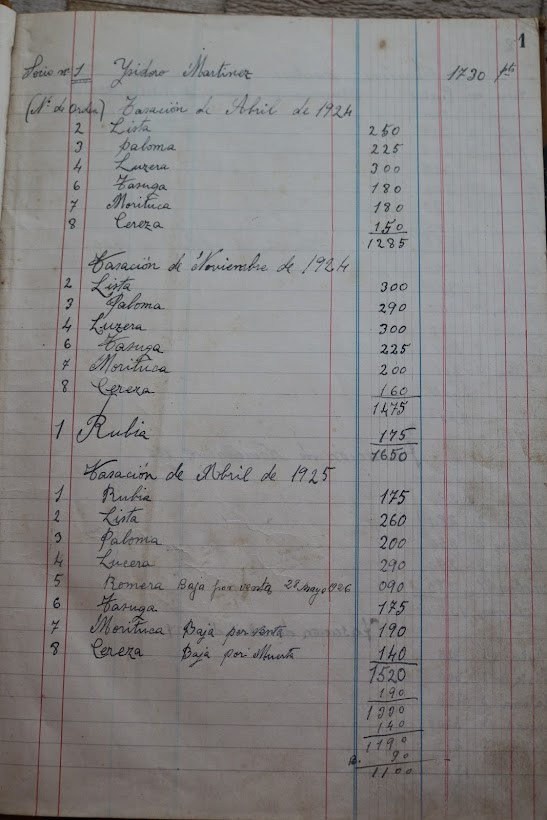 1
Socio nº 1 Ysidoro Martinez 1730 pts
(Nº de Orden) Tasación de Abril de 1924
2 Lista 250
3 paloma 225
4 Luzera 300
6 Tasuga 180
7 Morituca 180
8 Cereza 150
1285
Tasación de Noviembre de 1924
2 Lista 300
3 Paloma 290
4 Luzera 300
6 Tasuga 225
7 Morituca 200
8 Cereza 160
1475
1 Rubia 175
1650
Tasación de Abril de 1925
1 Rubia 175
2 Lista 260
3 Paloma 200
4 Lucera 290
5 Romera Baja por venta 28 mayo 1926 090
6 Tasuga 175
7 Morituca Baja por venta 190
8 Cereza Baja por Muerta 140
1520
190
1330
140
1190
B. 90
1100